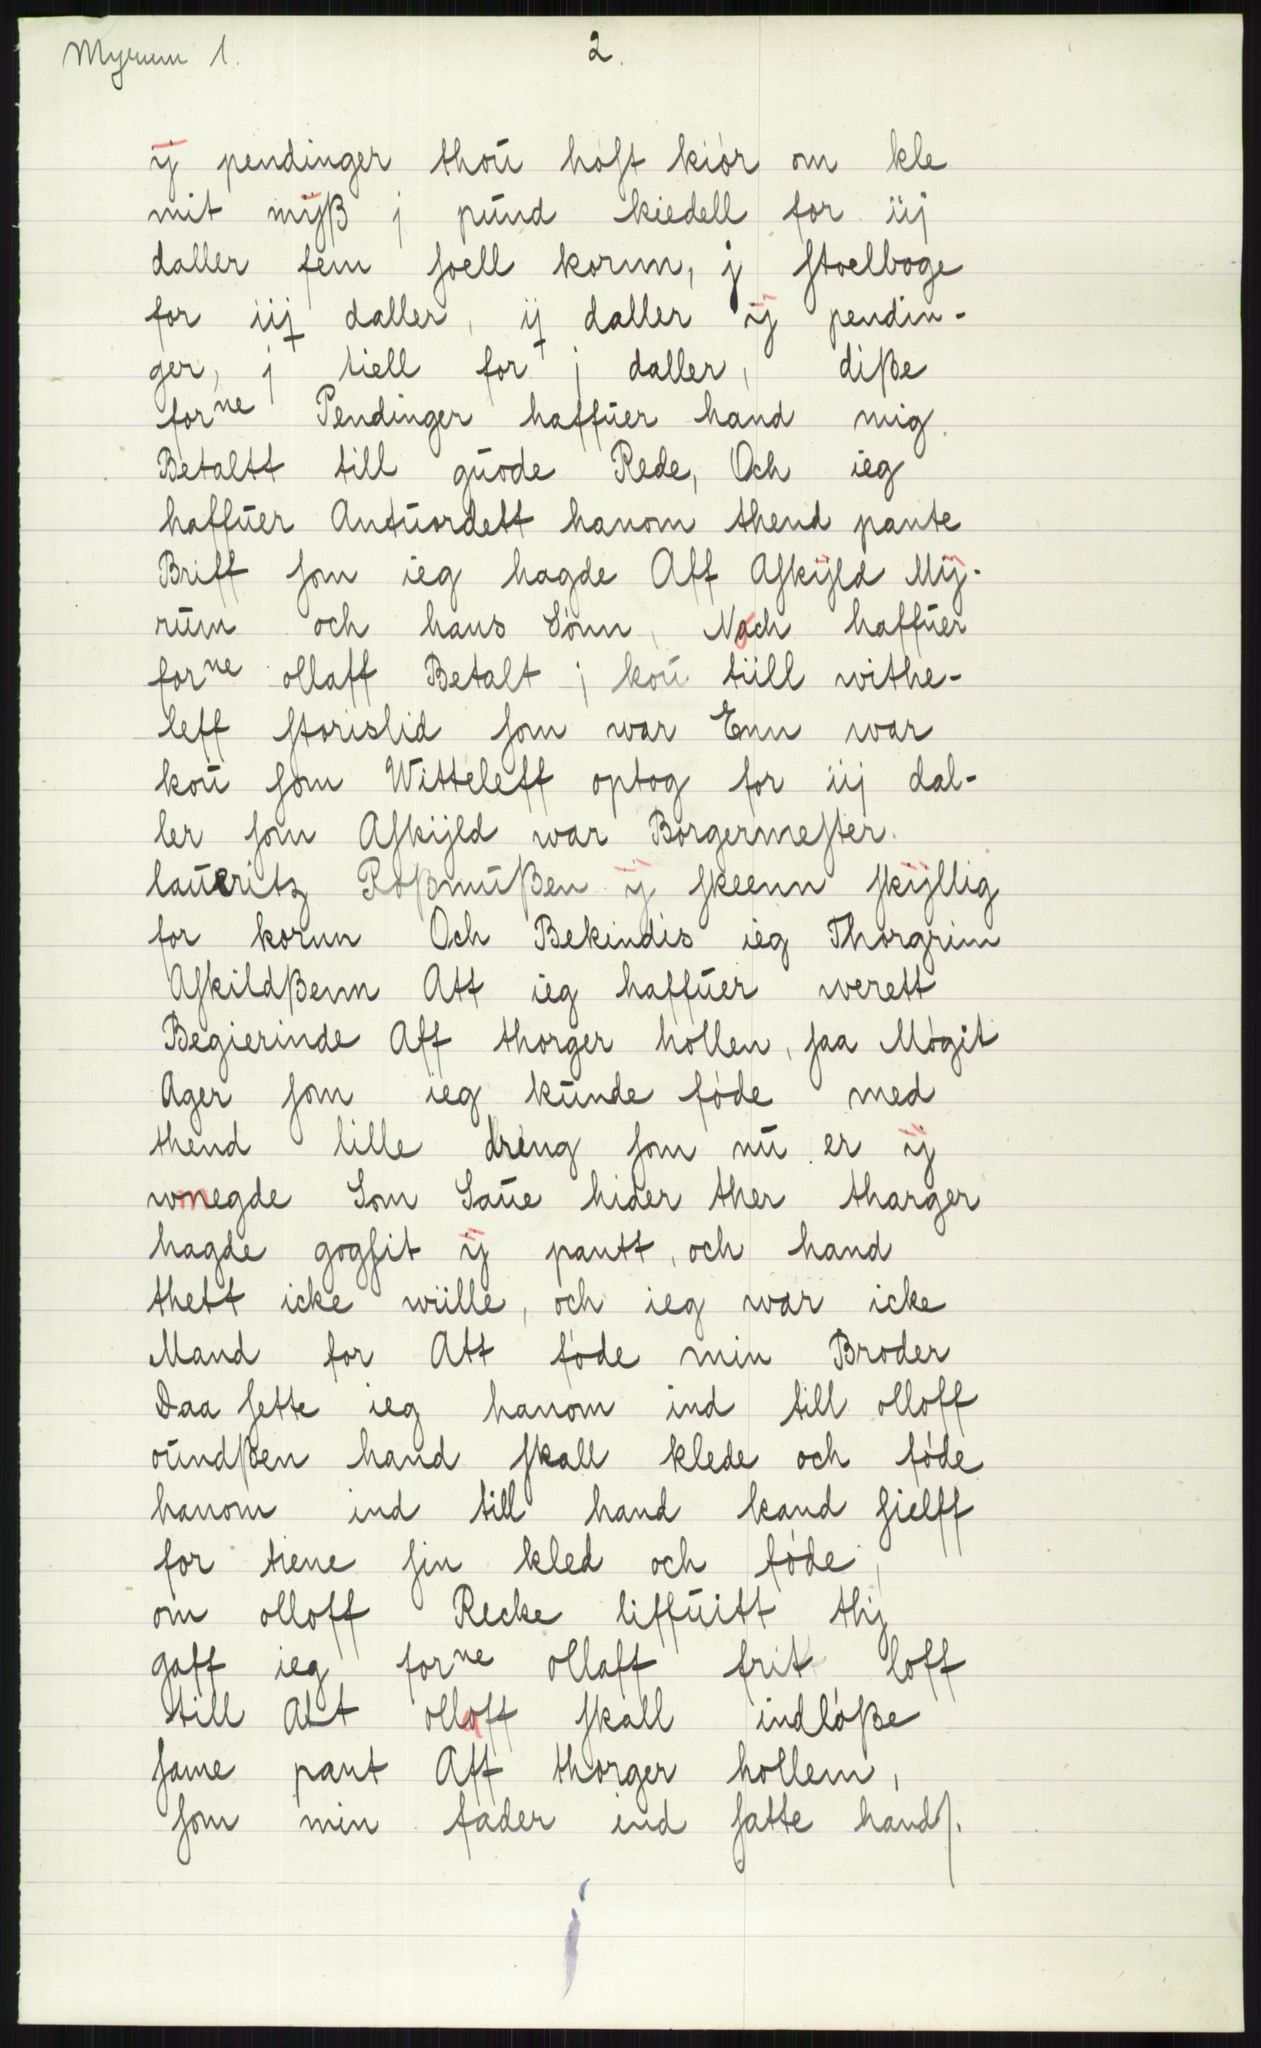 Myrum 1.
2.
ij pendinger thou høst kiør om kle
mit mijß j pund kiedell for iij
daller fem soell kornn, j stoelboge
for iij daller, ij daller ij pendin-
ger, j tiell for j daller, diße
forne Pendinger haffuer hand mig
Betaltt till guode Rede, Och ieg
haffuer Antuordett hanom thend pante
Briff som ieg hagde Aff Askijld Mij-
rum och hans Sønn, Noch haffuer
forne ollaff Betalt j kou tiill withe-
leff storislid som war Enn war
kou som Witteleff optog for iij dal-
ler som Askijld war Borgermester
laueritz Roßmußen ij skeenn skijllig
for kornn Och Bekindis ieg Thorgrim
Askildßenn Att ieg haffuer werett
Begierinde Aff thorger hollen, saa Møgit
Ager som ieg kunde føde med
thend lille dreng som nu er ij
wmegde Som Saue hider ther tharger
hagde gogsit ij pantt, och hand
thett icke wiille, och ieg war icke
Mand for Att føde min Broder
Daa sette ieg hanom ind till olloff
oundßen hand skall klede och føde
hanom ind till hand kand sielff
for tiene sin kled och føde,
om olloff Recke liffuitt thij
gaff ieg forne ollaff frit loff
till Att ollaff skall indløße
same pant Aff thorger hollem,
som min fader ind satte hand